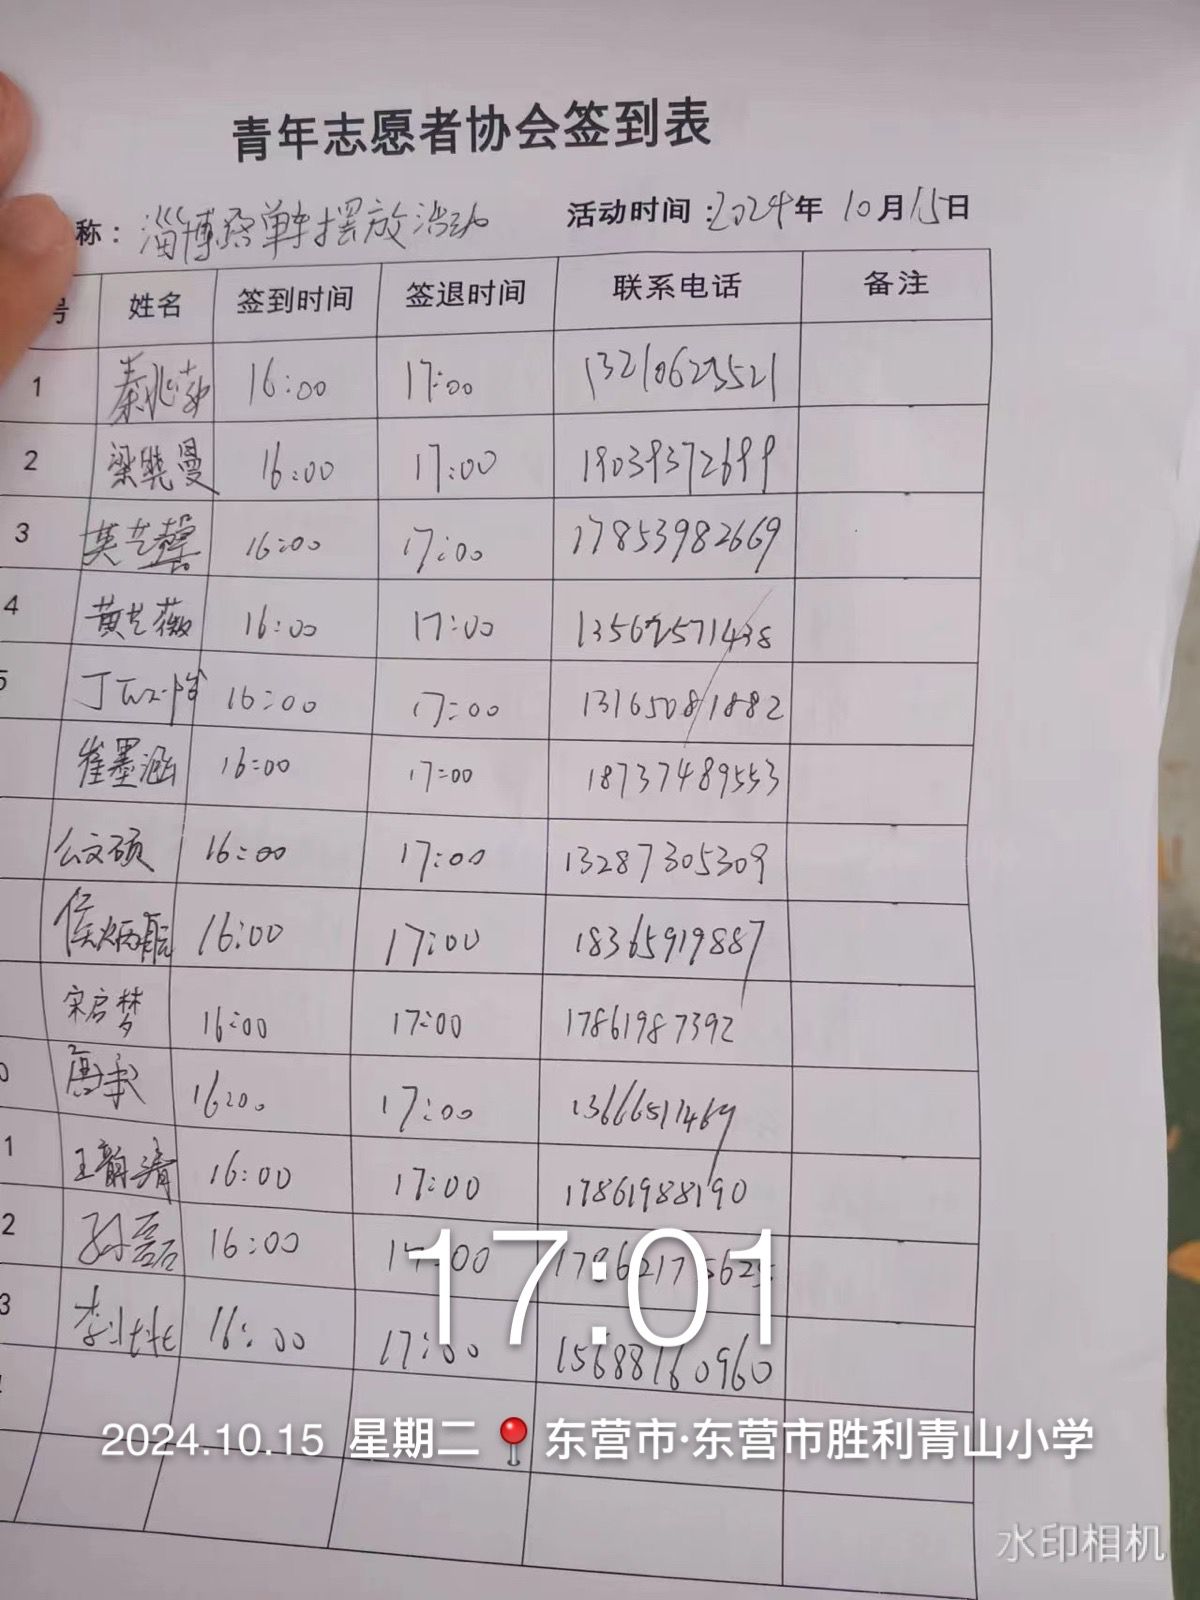 青年志愿者协会签到表
称： 淄博路单车摆放活动 活动时间：2024年10月15日
号 姓名 签到时间 签退时间 联系电话 备注
1 秦兆勃 16:00 17:00 13210623521
2 梁晓曼 16:00 17:00 19039372699
3 英艺馨 16:00 17:00 17853982669
4 黄艺薇 16:00 17:00 13562571438
5 丁 16:00 17:00 13165081882
崔墨涵 16:00 17:00 18737489553
公文硕 16:00 17:00 13287305309
侯炳航 16:00 17:00 18365919887
宋启梦 16:00 17:00 17861987392
0 唐承 16:00 17:00 13666511469
1 王韵清 16:00 17:00 17861988190
2 孙磊 16:00 17:00
3 李 16:00 17:00 15688160960
17:01
2024.10.15 星期二 东营市·东营市胜利青山小学
水印相机